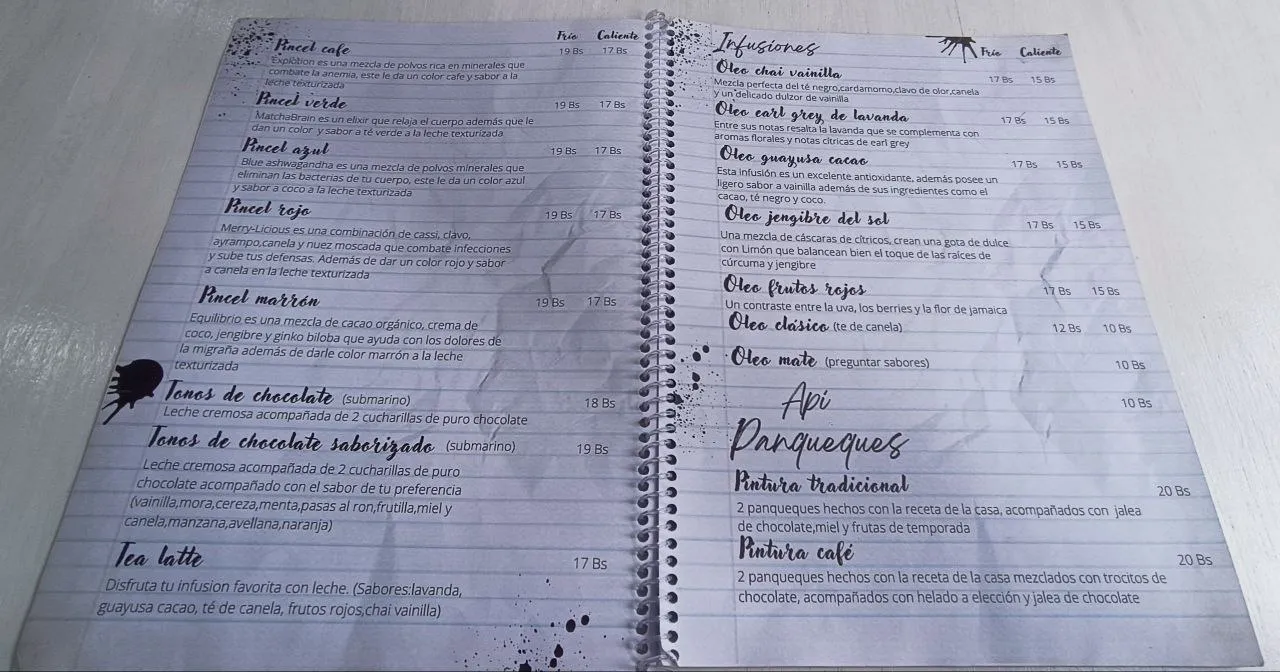 Frío Caliente
Pincel cafe 19 Bs 17 Bs
Explotion es una mezcla de polvos rica en minerales que
combate la anemia, este le da un color cafe y sabor a la
leche texturizada
Pincel verde 19 Bs 17 Bs
MatchaBrain es un elixir que relaja el cuerpo además que le
dan un color y sabor a té verde a la leche texturizada
Pincel azul 19 Bs 17 Bs
Blue ashwagandha es una mezcla de polvos minerales que
eliminan las bacterias de tu cuerpo, este le da un color azul
y sabor a coco a la leche texturizada
Pincel rojo 19 Bs 17 Bs
Merry-Licious es una combinación de cassi, clavo,
ayrampo,canela y nuez moscada que combate infecciones
y sube tus defensas. Además de dar un color rojo y sabor
a canela en la leche texturizada
Pincel marrón 19 Bs 17 Bs
Equilibrio es una mezcla de cacao orgánico, crema de
coco, jengibre y ginko biloba que ayuda con los dolores de
la migraña además de darle color marrón a la leche
texturizada
Tonos de chocolate (submarino) 18 Bs
Leche cremosa acompañada de 2 cucharillas de puro chocolate
Tonos de chocolate saborizado (submarino) 19 Bs
Leche cremosa acompañada de 2 cucharillas de puro
chocolate acompañado con el sabor de tu preferencia
(vainilla,mora,cereza,menta,pasas al ron,frutilla,miel y
canela,manzana,avellana,naranja)
Tea latte 17 Bs
Disfruta tu infusion favorita con leche. (Sabores:lavanda,
guayusa cacao, té de canela, frutos rojos,chai vainilla)
Infusiones Frío Caliente
Oleo chai vainilla 17 Bs 15 Bs
Mezcla perfecta del té negro,cardamomo,clavo de olor,canela
y un delicado dulzor de vainilla
Oleo earl grey de lavanda 17 Bs 15 Bs
Entre sus notas resalta la lavanda que se complementa con
aromas florales y notas cítricas de earl grey
Oleo guayusa cacao 17 Bs 15 Bs
Esta infusión es un excelente antioxidante, además posee un
ligero sabor a vainilla además de sus ingredientes como el
cacao, té negro y coco.
Oleo jengibre del sol 17 Bs 15 Bs
Una mezcla de cáscaras de cítricos, crean una gota de dulce
con Limón que balancean bien el toque de las raíces de
cúrcuma y jengibre
Oleo frutos rojos 17 Bs 15 Bs
Un contraste entre la uva, los berries y la flor de jamaica
Oleo clásico (te de canela) 12 Bs 10 Bs
Oleo mate (preguntar sabores) 10 Bs
Api 10 Bs
Panqueques
Pintura tradicional 20 Bs
2 panqueques hechos con la receta de la casa, acompañados con jalea
de chocolate,miel y frutas de temporada
Pintura café 20 Bs
2 panqueques hechos con la receta de la casa mezclados con trocitos de
chocolate, acompañados con helado a elección y jalea de chocolate